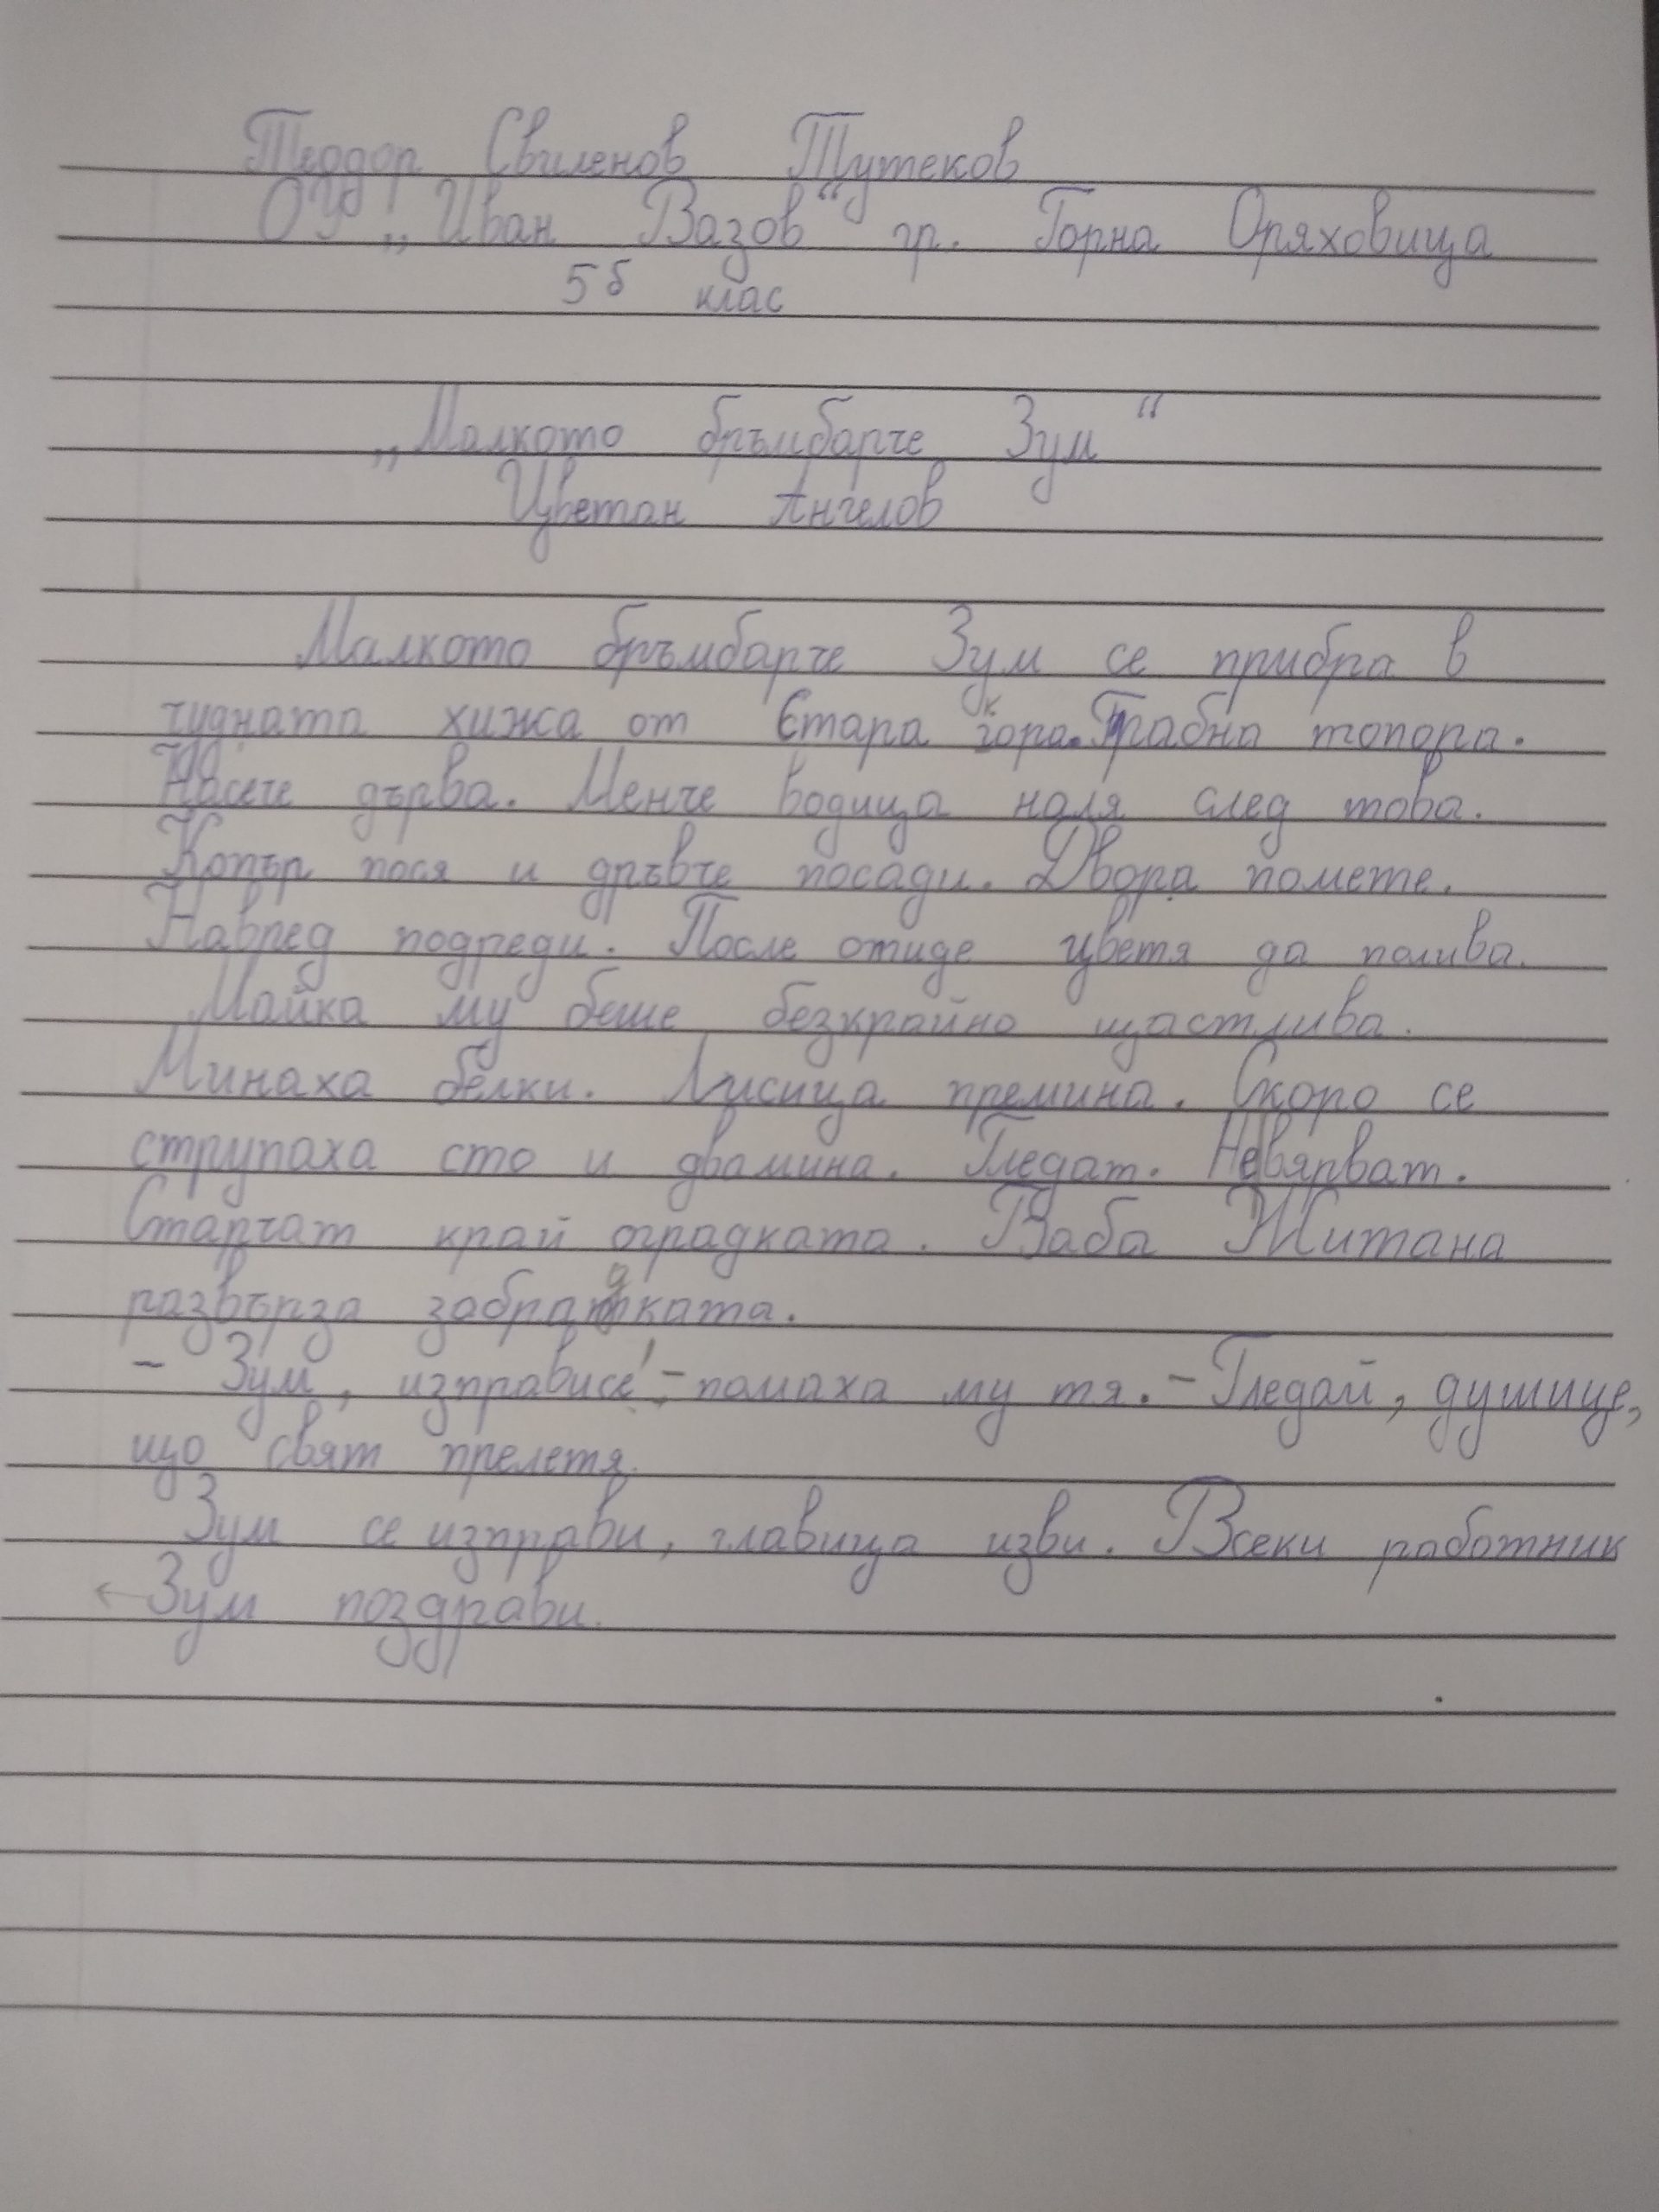 Теодор Свиленов Тутеков
ОУ „Иван Вазов“ гр. Горна Оряховица
5б клас
„Малкото бръмбарче Зум“
Цветан Ангелов
Малкото бръмбарче Зум се прибра в
чудната хижа от Стара кора. Грабна топора.
Насече дърва. Менче водица наля след това.
Копър пося и дръвче посади. Двора помете.
Навред подреди. После отиде цветя да полива.
Майка му беше безкрайно щастлива.
Минаха белки. Лисица премина. Скоро се
струпаха сто и двамина. Гледат. Не вярват.
Старчат край оградката. Баба Житана
развърза забрадката.
- Зум, изправисе! - помаха му тя. - Гледай, душице,
що свят прелетя.
Зум се изправи, главица изви. Всеки работник
← Зум поздрави.